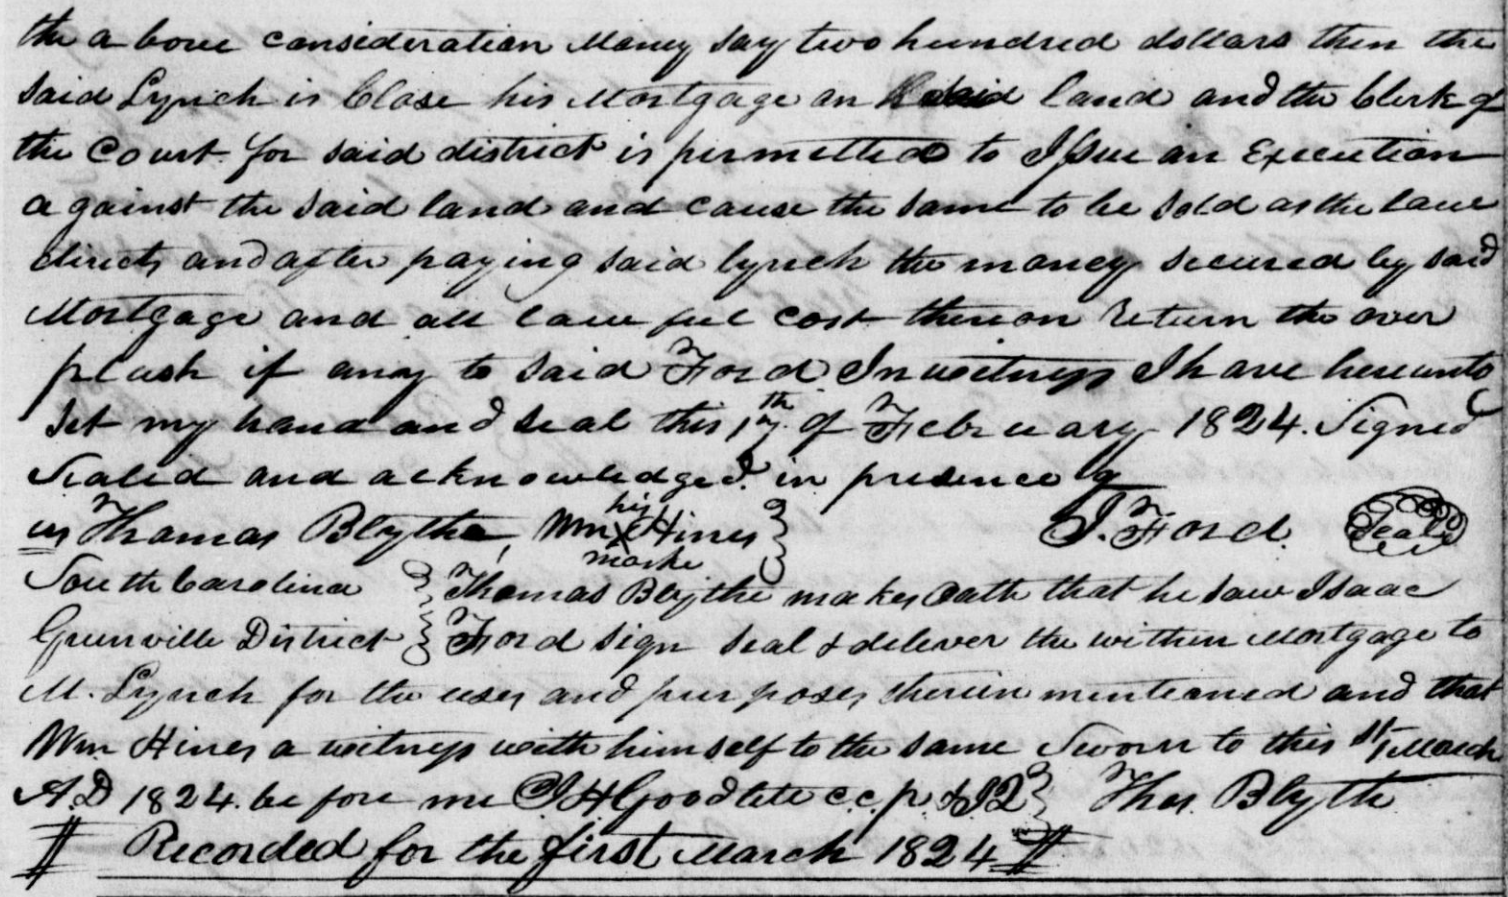 the a bove consideration Money say two hundred dollars then the
said Lynch is Close his Mortgage on said land and the Clerk of
the Court for said district is permitted to Issue an Execution
a gainst the said land and cause the same to be sold as the law
directs and after paying said lynch the money secured by said
Mortgage and all law ful cost thereon return the over
plush if any to said Ford In witness I have hereunto
set my hand and seal this of February 1824. Signed
Sealed and acknowledged in presence of
us Thomas Blythe, Wm his x marke Hines J. Ford. Seal
South Carolina Thomas Blythe makes Oath that he saw Isaac
Greenville District Ford sign seal & deliver the within Mortgage to
M. Lynch for the uses and pur poses therein mentioned and that
Wm Hines a witness with himself to the same Sworn to this 1st March
A.D 1824. be fore me Goodlett c.c.p. Thos. Blythe
Recorded for the first March 1824